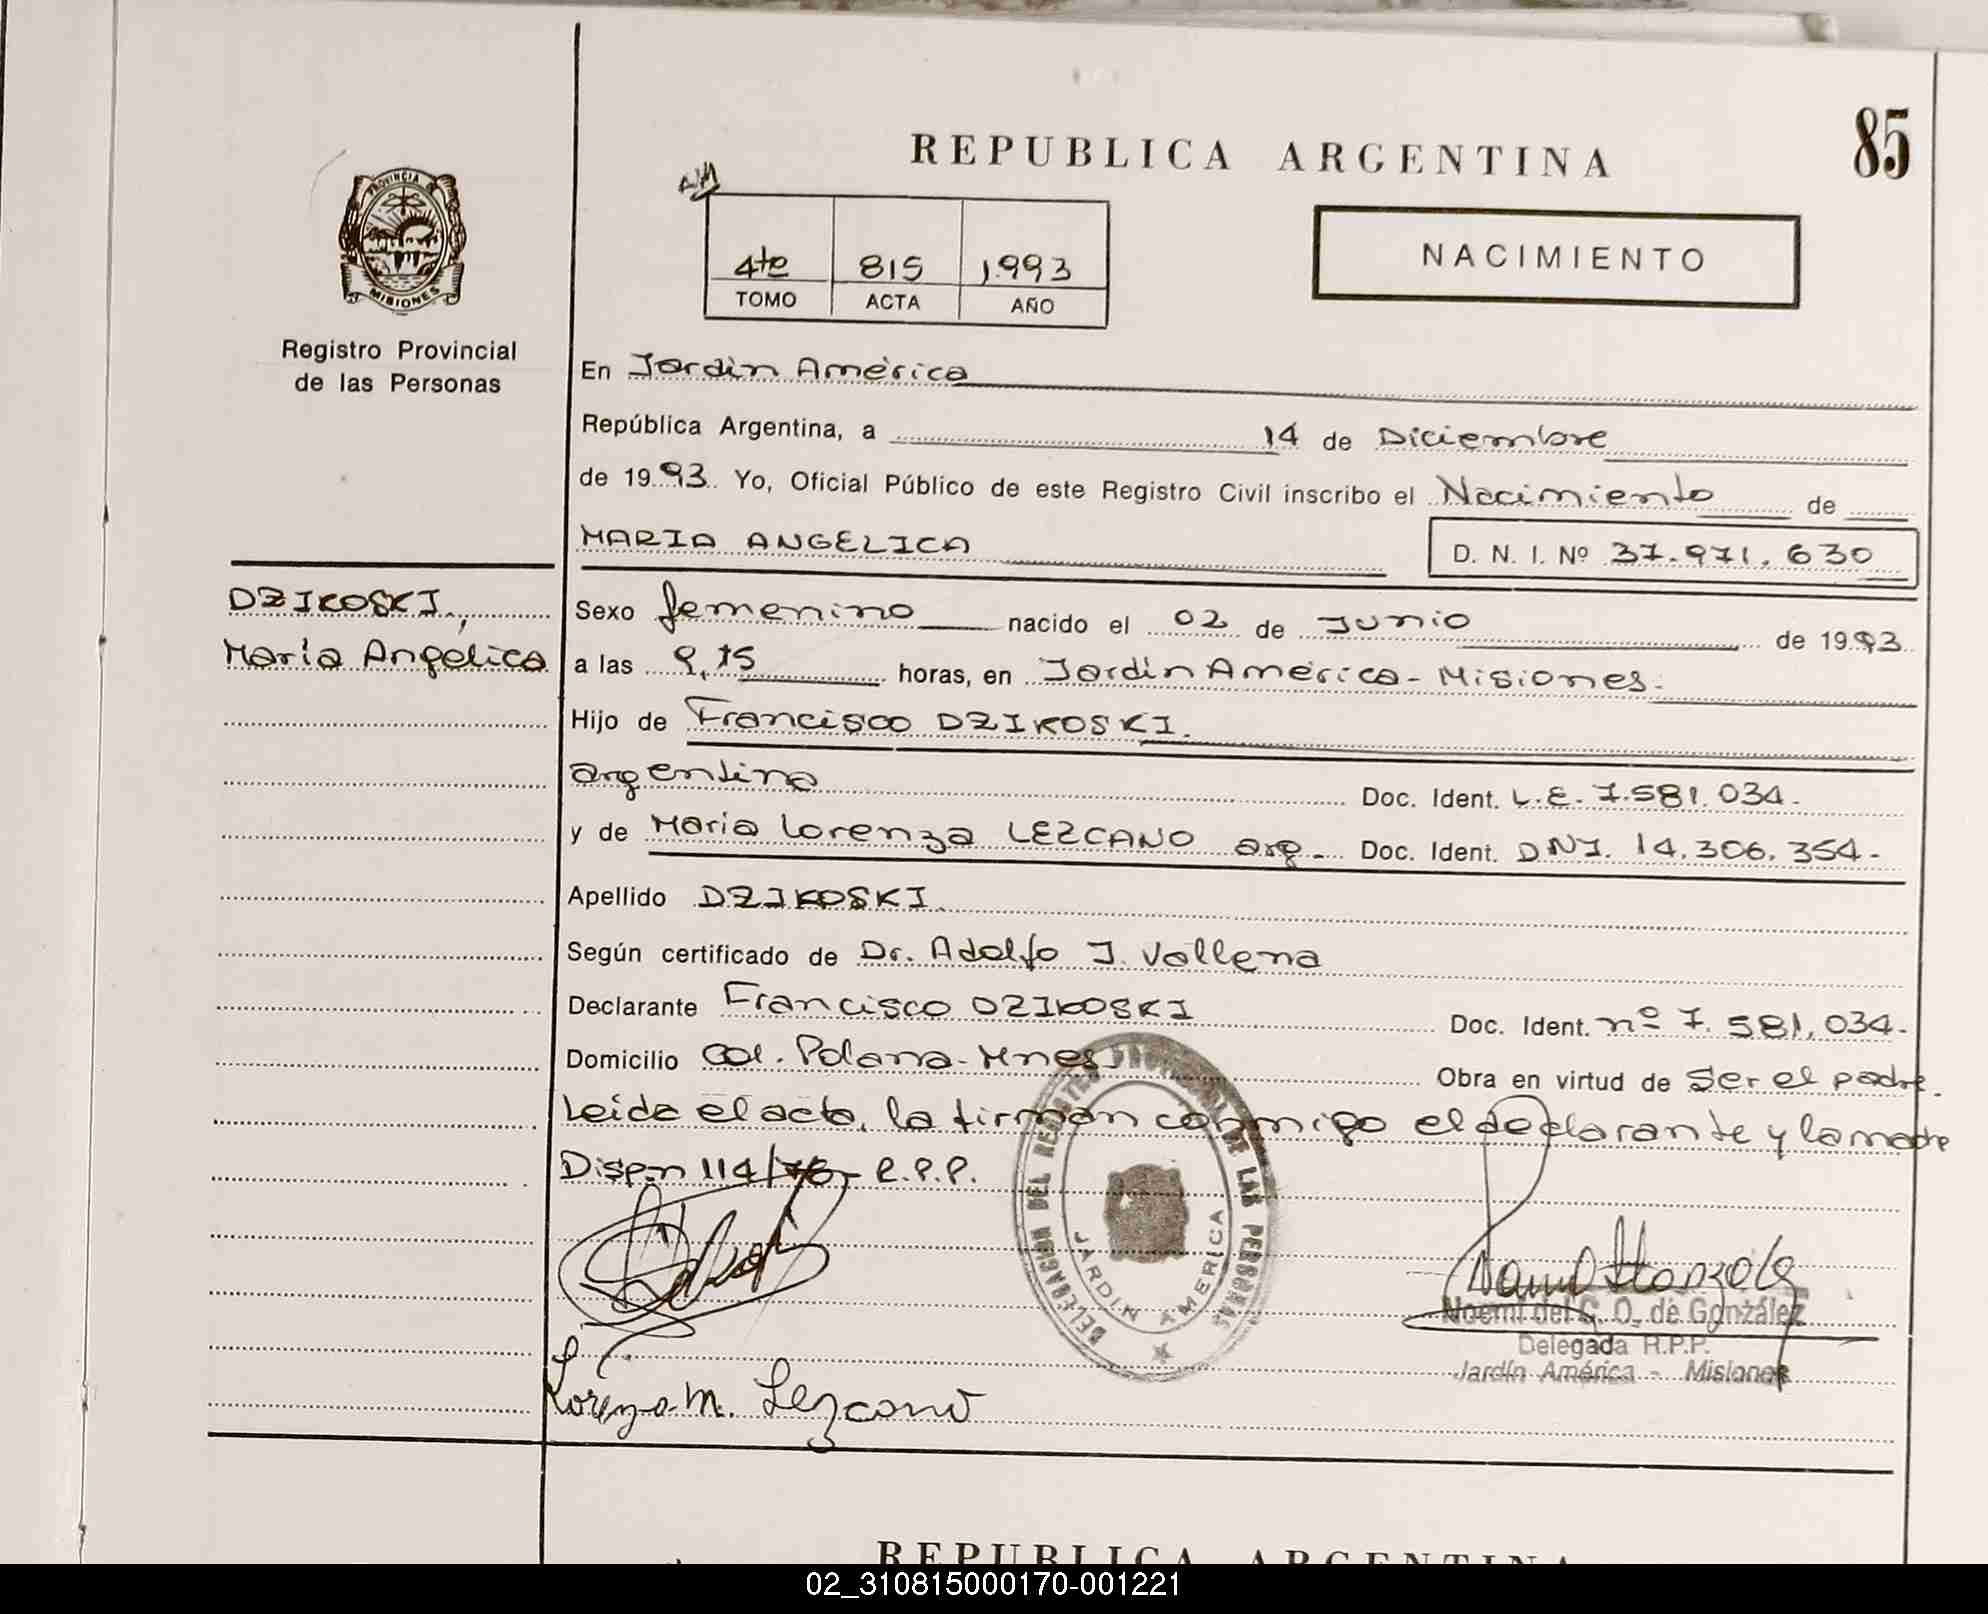 85
REPUBLICA ARGENTINA
NACIMIENTO
PROVINCIA DE
MISIONES
Registro Provincial
de las Personas
4to 815 1.993
TOMO ACTA AÑO
En Jardín América
República Argentina, a 14 de Diciembre
de 1993. Yo, Oficial Público de este Registro Civil inscribo el Nacimiento de
MARIA ANGELICA
D. N. I. Nº 37.971.630
DZIKOSKI,
María Angélica
Sexo femenino nacido el 02 de Junio de 1993
a las 9,15 horas, en Jardín América - Misiones.
Hijo de Francisco DZIKOSKI.
argentino Doc. Ident. L.E. 7.581.034.
y de María Lorenza LEZCANO arg. Doc. Ident. DNI. 14.306.354-
Apellido DZIKOSKI.
Según certificado de Dr. Adolfo J. Vallena
Declarante Francisco DZIKOSKI Doc. Ident. nº 7.581.034-
Domicilio Col. Polana-Mnes Obra en virtud de Ser el padre.
Leída el acta, la firman conmigo el declarante y la madre
Disp.n 114/78- R.P.P.
DELEGACION DEL REGISTRO PROVINCIAL DE LAS PERSONAS
JARDIN AMERICA
Noemí del C. O. de González
Delegada R.P.P.
Jardín América - Misiones
Lorenza M. Lezcano
REPUBLICA ARGENTINA
02_310815000170-001221